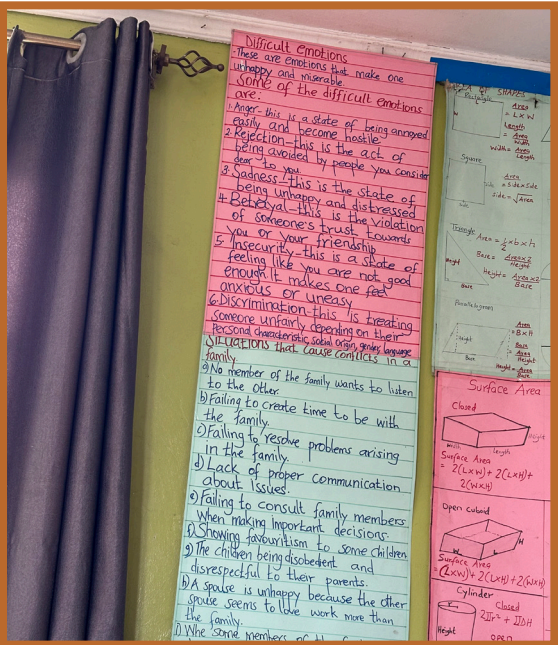 Difficult emotions
-These are emotions that make one
unhappy and miserable
Some of the difficult emotions
are:
1. Anger- this is a state of being annoyed
easily and become hostile
2. Rejection-this is the act of
being avoided by people you consider
dear to you
3. Sadness-this is the state of
being unhappy and distressed
4. Betrayal-this is the violation
of someone's trust towards
you or your friendship
5. Insecurity-this is a state of
feeling like you are not good
enough It makes one feel
anxious or uneasy
6. Discrimination-this is treating
someone unfairly depending on their
Personal characteristic, social origin, gender, language
Situations that cause conflicts in a
family.
a) No member of the family wants to listen
to the other.
b) Failing to create time to be with
the family.
c) Failing to resolve problems arising
in the family.
d) Lack of proper communication
about issues.
e) Failing to consult family members
when making important decisions.
f) Showing favouritism to some children
g) The children being disobedient and
disrespectful to their parents.
h) A spouse is unhappy because the other
spouse seems to love work more than
the family.
some members of the
OF SHAPES
Rectangle
W
Area
= L x W
Length
= Area
Width
Width = Area
Length
Square
Side
Area
= Side x Side
Side = √Area
Triangle
Area = 1/2 x b x h
Base = Area x 2
Height
Height = Area x 2
Base
Height
Base
Parallelogram
Height
Base
Area
= B x H
Base
= Area
Height
Height = Area
Base
Surface Area
Closed
Width
Length
Height
Surface Area
= 2(LxW) + 2(LxH) +
2(WxH)
Open cuboid
W
L
H
Surface Area
= (LxW) + 2(LxH) + 2(WxH)
Cylinder
Closed
2πr² + πDH
Height
open